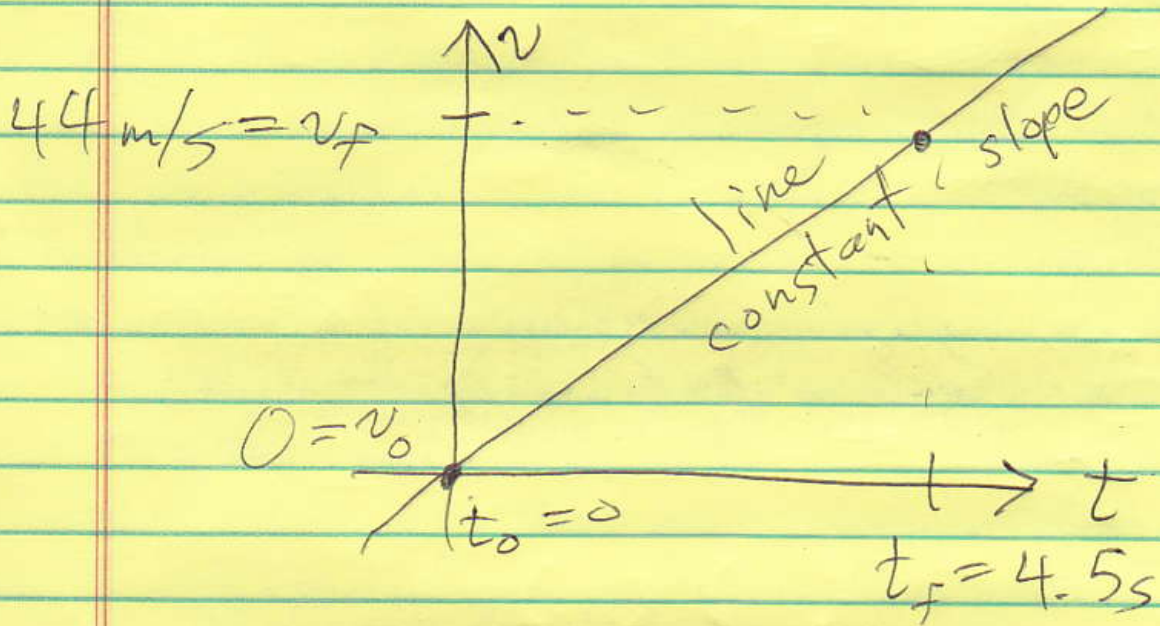 v
44 m/s = v_f
line
constant slope
0 = v_0
t_0 = 0
t
t_f = 4.5s